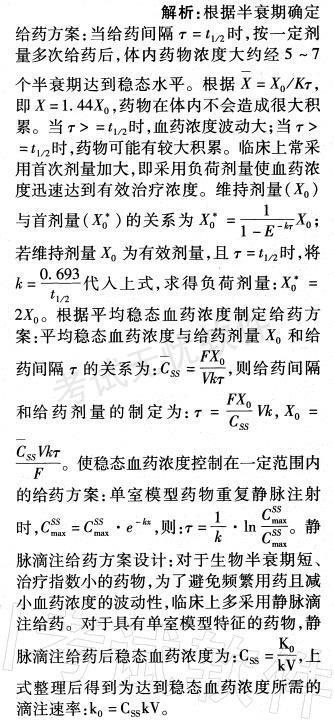 解析:根据半衰期确定
给药方案:当给药间隔 τ = t₁/₂时,按一定剂
量多次给药后,体内药物浓度大约经 5 ~ 7
个半衰期达到稳态水平。根据 X̄ = X₀/Kτ,
即 X̄ = 1.44X₀,药物在体内不会造成很大积
累。当 τ > = t₁/₂时,血药浓度波动大;当 τ >
= t₁/₂时,药物可能有较大积累。临床上常采
用首次剂量加大,即采用负荷剂量使血药浓
度迅速达到有效治疗浓度。维持剂量(X₀)
与首剂量(X₀*)的关系为 X₀* = 1/(1 - E^(-kτ)) X₀;
若维持剂量 X₀ 为有效剂量,且 τ = t₁/₂时,将
k = 0.693/t₁/₂ 代入上式,求得负荷剂量:X₀* =
2X₀。根据平均稳态血药浓度制定给药方
案:平均稳态血药浓度与给药剂量 X₀ 和给
药间隔 τ 的关系为:C̄ss = FX₀/Vkτ,则给药间隔
和给药剂量的制定为:τ = FX₀/C̄ss Vk, X₀ =
C̄ssVkτ/F。使稳态血药浓度控制在一定范围内
的给药方案:单室模型药物重复静脉注射
时,C^SS_max = C^SS_max · e^(-kx),则:τ = 1/k · ln C^SS_max/C^SS_max。静
脉滴注给药方案设计:对于生物半衰期短、
治疗指数小的药物,为了避免频繁用药且减
小血药浓度的波动性,临床上多采用静脉滴
注给药。对于具有单室模型特征的药物,静
脉滴注给药后稳态血药浓度为:Css = K₀/kV,上
式整理后得到为达到稳态血药浓度所需的
滴注速率:k₀ = CssKV。